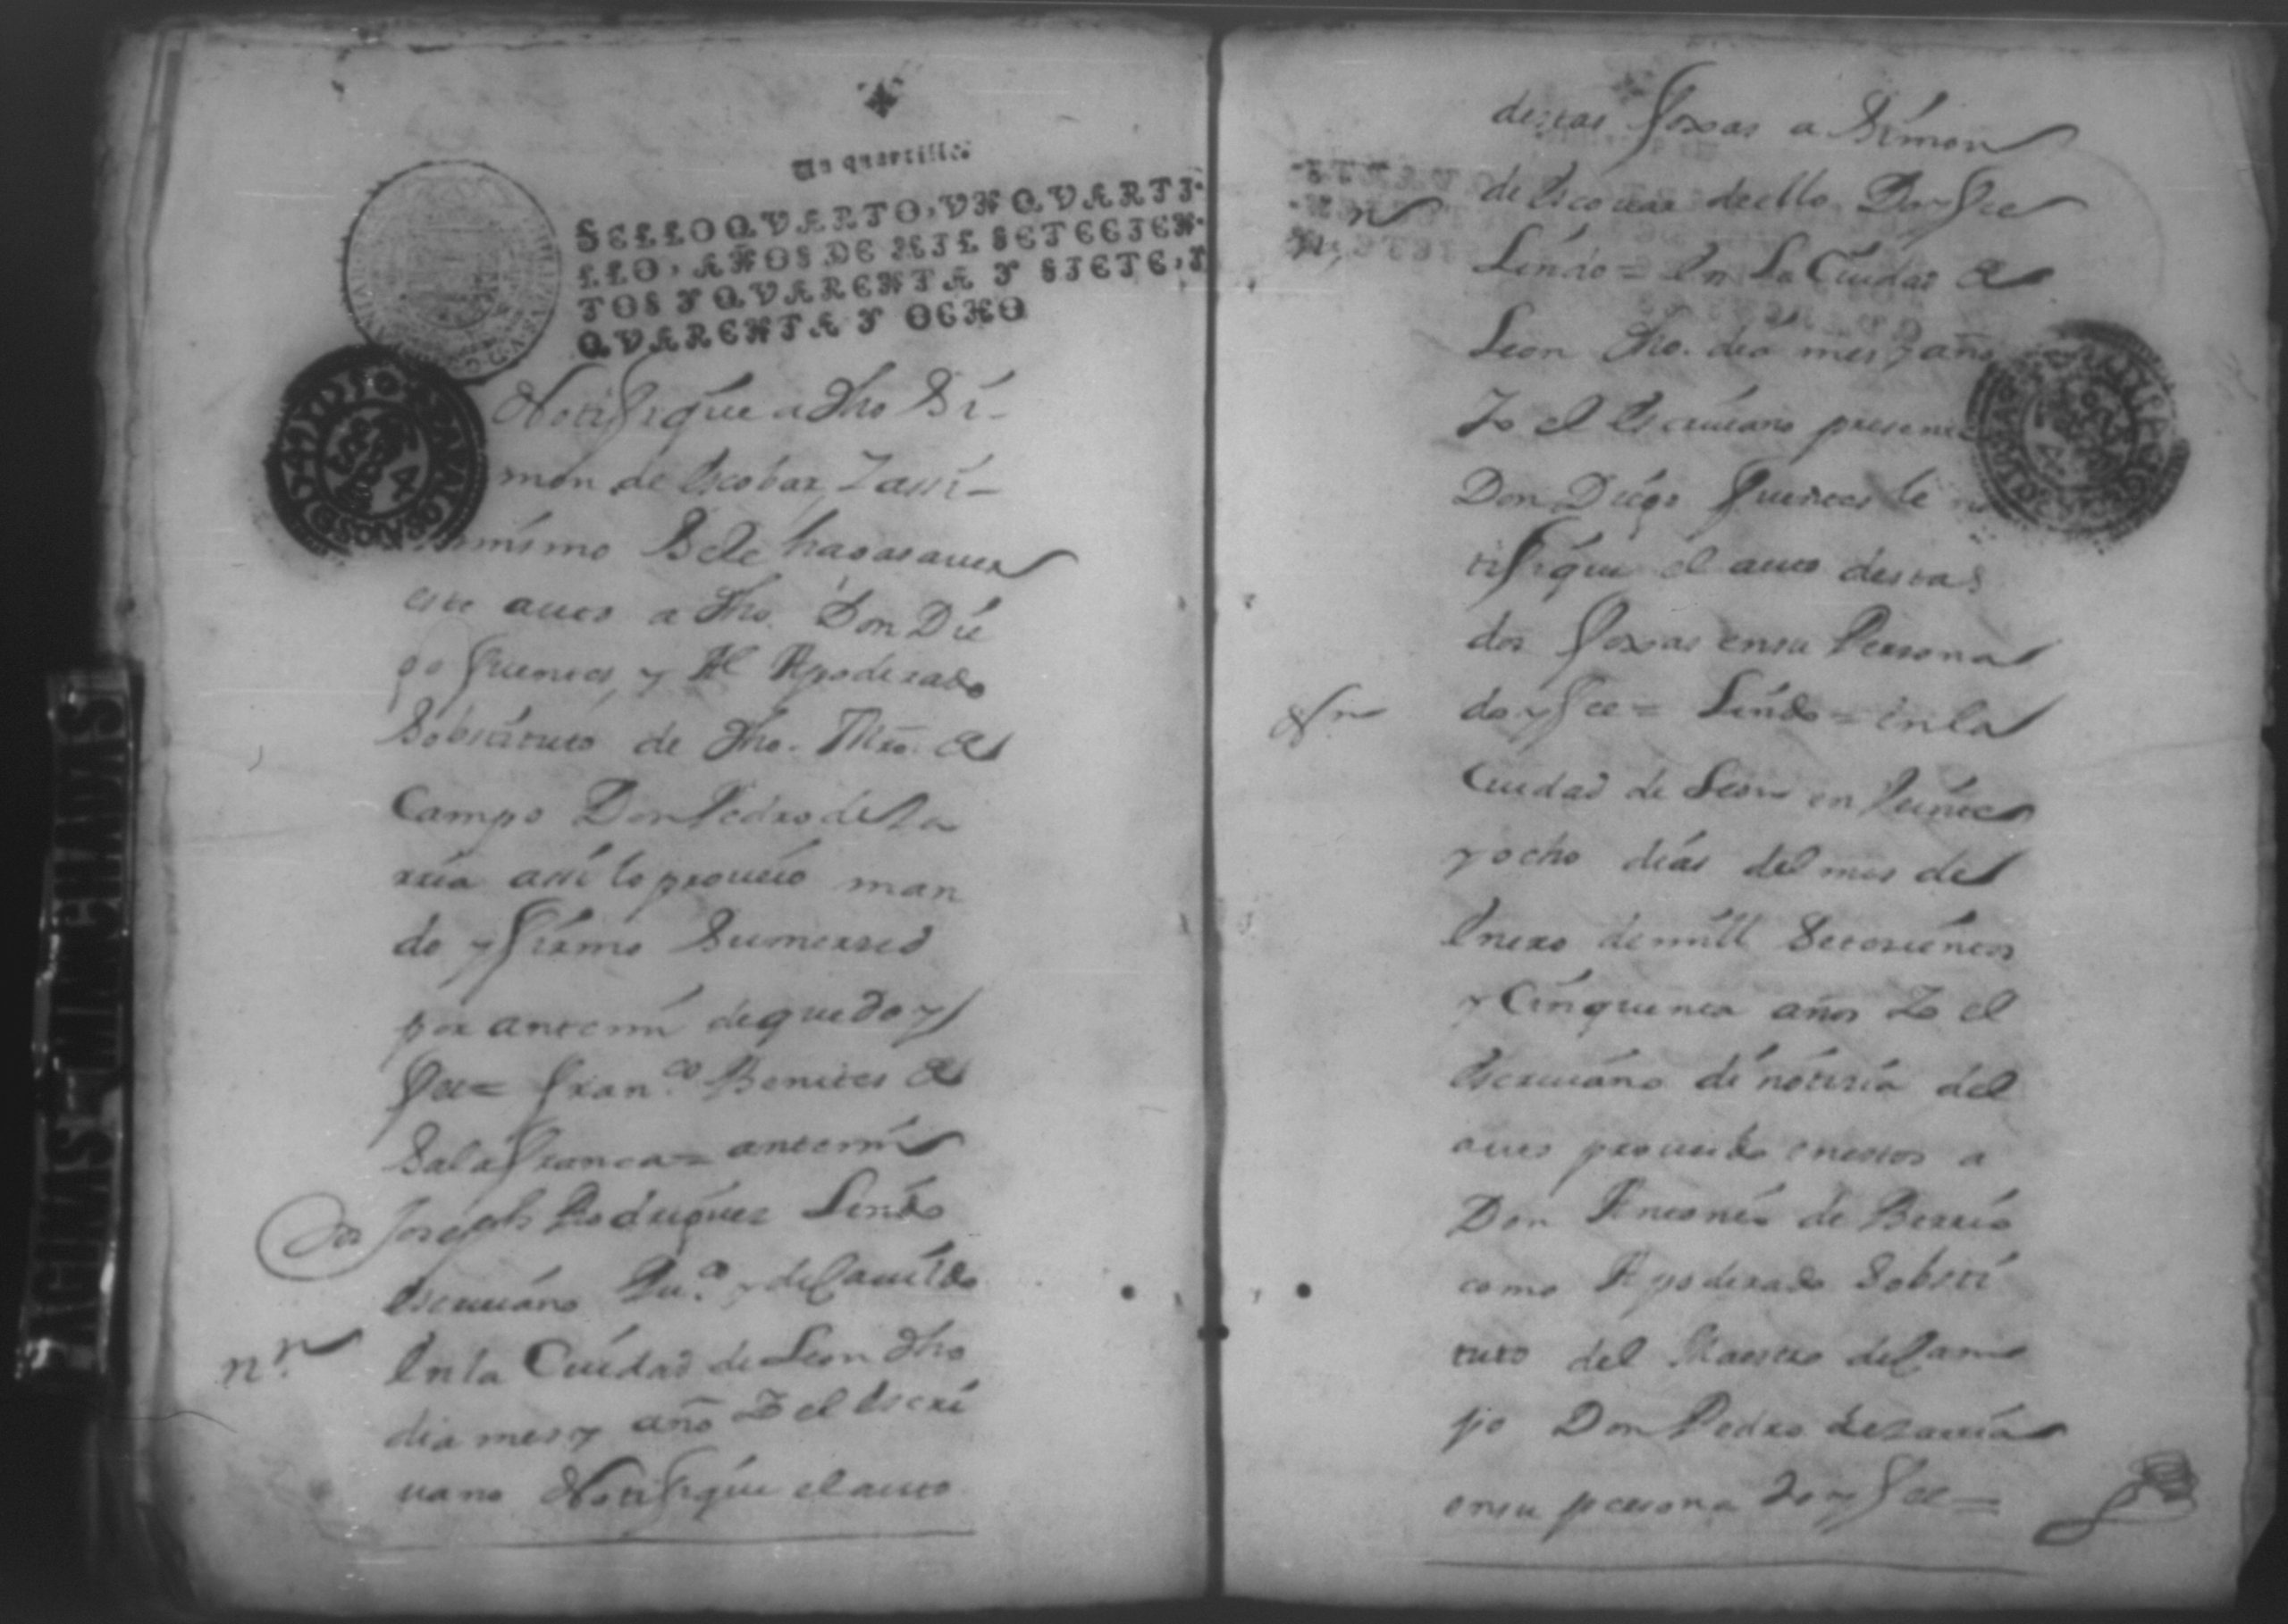 Un quartillo
SELLO QVARTO, VN QVARTI-
LLO, AÑOS DE MIL SETECIEN-
TOS Y QVARENTA Y SIETE, Y
QVARENTA Y OCHO
Notifíquie a dho Sí-
mon de Escobar, Y assí-
mísmo Se le haga sauer
este auto a dho. Don Díe
go fuentes, y Al Apoderado
Sobstituto de dho. Mro. de
Campo Don Pedro de Sa
rria assí lo proueío man
do y firmo Sumersed
por antemí de que doy
fee = Fran.co Benites de
Salafranca = antemí
Joseph Rodríguez Lindo
Escriuano Pu.co y de Cauildo
nn. En la Cíudad de Leon dho
dia mes y año Yo el Escri
uano Notifíque el auto
destas foxas a Símon
de Escouar de ello Doy fee
Lindo = En La Cíudad de
Leon dho. día mes y año
Yo el Escriuano presente
Don Díego fuentes le no
tifíque el auto destas
dos foxas en su Persona
doy fee = Lindo = En la
Cíudad de Leon en Veínte
y ocho días del mes de
Enero de míll Setesíentos
y Cínquenta años Yo el
Escriuano dí notisia del
auto proueido en estos a
Don Antonio de Berrio
como Apoderado Sobsti
tuto del Maestro de Cam
po Don Pedro de Sarria
en su persona doy fee =
PAGINAS MANCHADAS